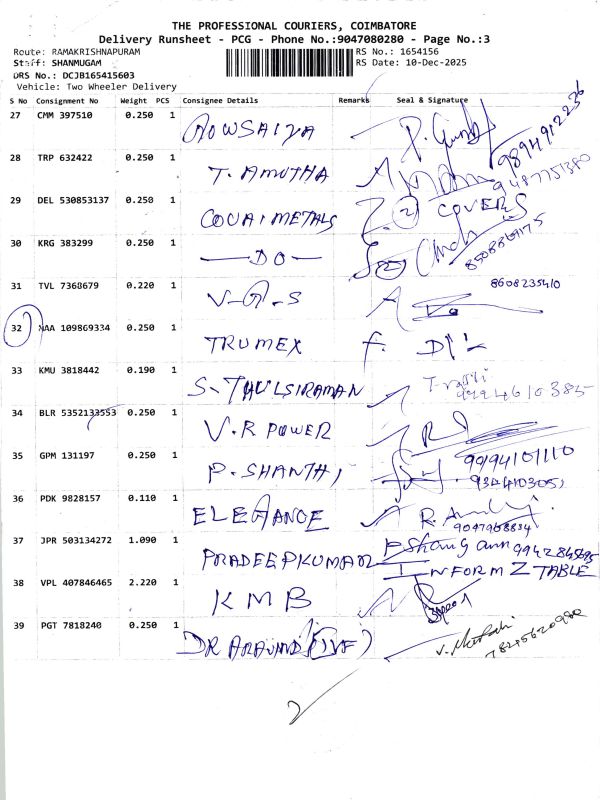 THE PROFESSIONAL COURIERS, COIMBATORE
Delivery Runsheet - PCG - Phone No.:9047080280 - Page No.:3
Route: RAMAKRISHNAPURAM RS No.: 1654156
Staff: SHANMUGAM RS Date: 10-Dec-2025
DRS No.: DCJB165415603
Vehicle: Two Wheeler Delivery
S No Consignment No Weight PCS Consignee Details Remarks Seal & Signature
27 CMM 397510 0.250 1 NOWSAIYA 9894912236
28 TRP 632422 0.250 1 T. AMUTHA 9487751380
29 DEL 530853137 0.250 1 COVAI METALS 2 COVERS
30 KRG 383299 0.250 1 —DO— 2
31 TVL 7368679 0.220 1 V-G-S 8608235410
32 NAA 109869334 0.250 1 TRUMEX
33 KMU 3818442 0.190 1 S-THULSIRAMAN
34 BLR 5352133553 0.250 1 V.R POWER
35 GPM 131197 0.250 1 P.SHANTHI 9994101110
36 PDK 9828157 0.110 1 ELEGANCE 9047968834
37 JPR 503134272 1.090 1 PRADEEPKUMAR
38 VPL 407846465 2.220 1 KMB INFORM Z TABLE
39 PGT 7818240 0.250 1 DR ARAVIND